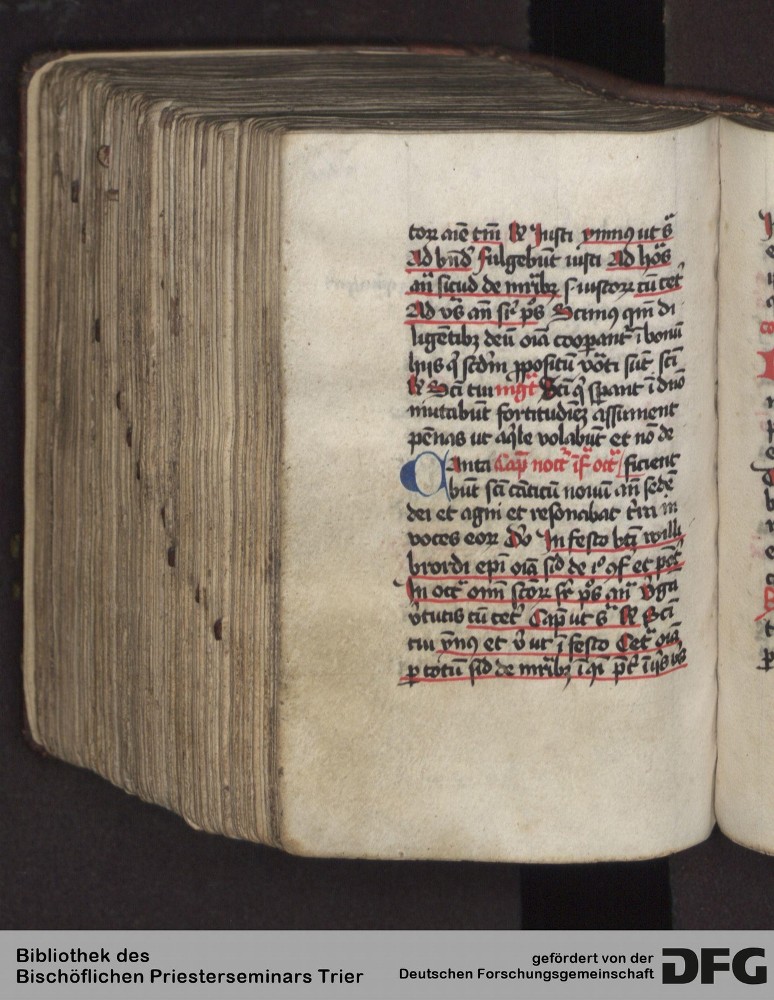 tor aīe tm̄ R Iusti ymnꝰ ut sᷓ
Ad bn̄d fulgebūt iusti Ad hōs
an̄ sicud de mr̄ibꝫ ſ iustorꝫ cū cet̄
Ad vs̄ an̄ sr̄ ps̄ Scimꝰ qm̄ di
ligētibꝫ deū oīa cooperant̄ ī bonū
hijs qͥ scd̄m ꝓpositū vōti sūt sc̄i
R Sc̄i tui mgt̄ Sc̄i qͥ sꝑant ī dn̄o
mutabūt fortitudiēꝫ assument
pēnas ut aqͥle volabūt et nō de
Anta Cap̄ noct̄ īf̄ oct̄ ficient
būt sc̄i cāticū nouū an̄ sedē
dei et agni et resonabat t̄ra in
voces eor V̄o In festo bt̄i willi
brordi epī oīa sīd de ıͦ ꝯf et pc̄t̄
In oct̄ oīm sc̄or sr̄ ps̄ an̄ v̄ga
v̄tutis cū cet̄ Cap̄ ut sᷓ R Sc̄i
tui ȳnꝰ et v̄ ut ī festo Cet̄ oīa
ꝑ totū sīd de mr̄ibꝫ
Bibliothek des
Bischöflichen Priesterseminars Trier
gefördert von der
Deutschen Forschungsgemeinschaft
DFG